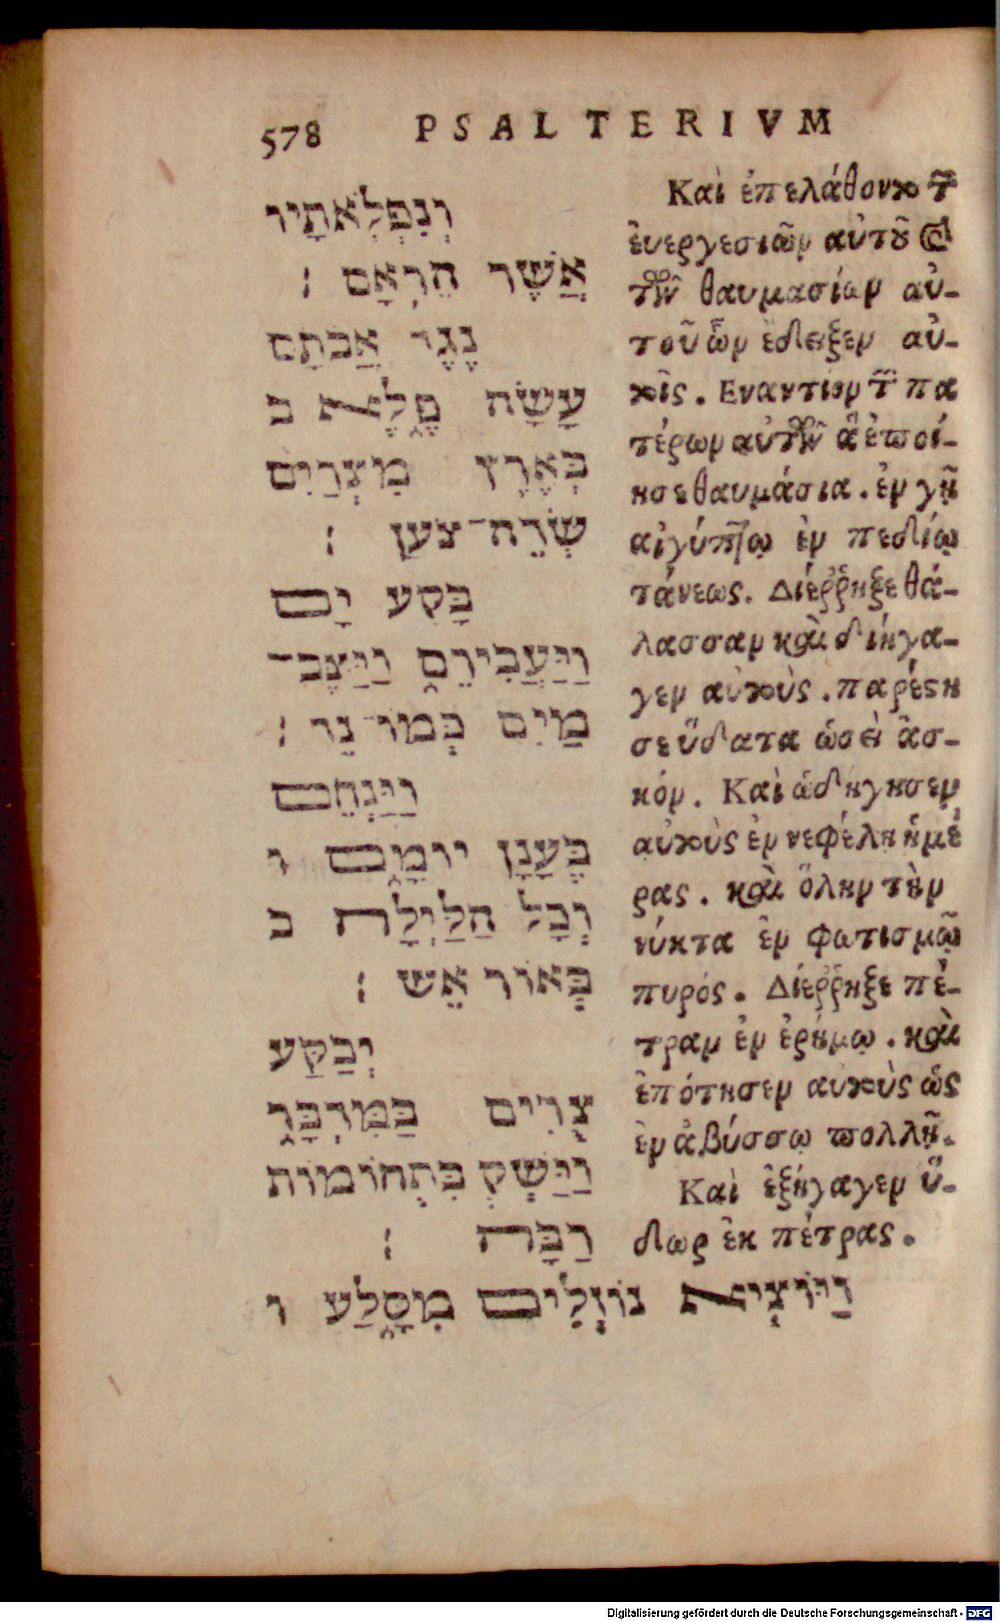 578 PSALTERIVM
וְנִפְלְאֹתָיו
אֲשֶׁר הֵרְאָם ׃
נֶגֶד אֲבֹתָם
עָשָׂה פֶלֶא ב
בְּאֶרֶץ מִצְרַיִם
שְׂדֵה־צֹעַן ׃
בָּקַע יָם
וַיַּעֲבִירֵם וַיַּצֶּב־
מַיִם כְּמוֹ־נֵד ׃
וַיַּנְחֵם
בֶּעָנָן יוֹמָם ו
וְכָל הַלַּיְלָה ב
בְּאוֹר אֵשׁ ׃
יְבַקַּע
צֻרִים בַּמִּדְבָּר
וַיַּשְׁקְ כִּתְהוֹמוֹת
רַבָּה ׃
וַיּוֹצִא נוֹזְלִים מִסָּלַע ו
Καὶ ἐπελάθοντο τῶν
ἐυεργεσιῶν αὐτοῦ καὶ
τῶν θαυμασίων αὐ-
τοῦ ὧν ἔδειξεν αὐ-
τοῖς. Εναντίον τῶν πα
τέρων αὐτῶν ἃ ἐποί-
ησε θαυμάσια. ἐν γῇ
αἰγύπτῳ ἐν πεδίῳ
τάνεως. Διέῤῥηξε θά-
λασσαν καὶ διήγα-
γεν αὐτοὺς. παρέστη
σε ὕδατα ὡσεὶ ἀσ-
κόν. Καὶ ὡδήγησεν
αὐτοὺς ἐν νεφέλῃ ἡμέ
ρας. καὶ ὅλην τὴν
νύκτα ἐν φωτισμῷ
πυρός. Διέῤῥηξε πέ-
τραν ἐν ἐρήμῳ. καὶ
ἐπότησεν αὐτοὺς ὡς
ἐν ἀβύσσῳ πολλῇ.
Καὶ ἐξήγαγεν ὕ-
δωρ ἐκ πέτρας.
Digitalisierung gefördert durch die Deutsche Forschungsgemeinschaft - DFG